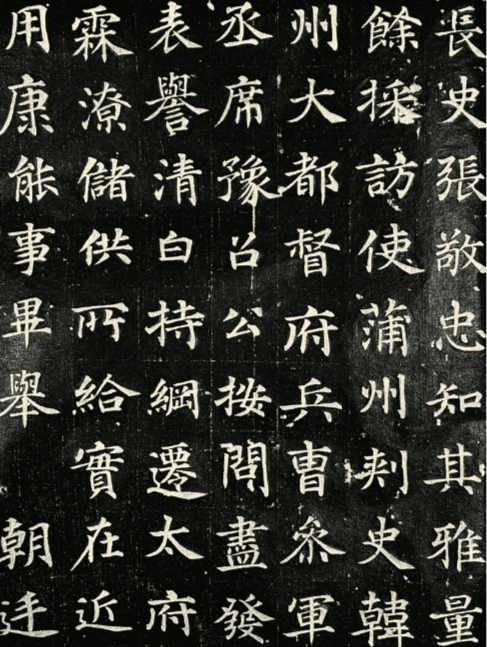 長史張敬忠知其雅量
餘採訪使蒲州刾史韓
州大都督府兵曹叅軍
丞席豫召公按問盡發
表譽清白持綱遷太府
霖潦儲供所給實在近
用康能事畢舉 朝廷